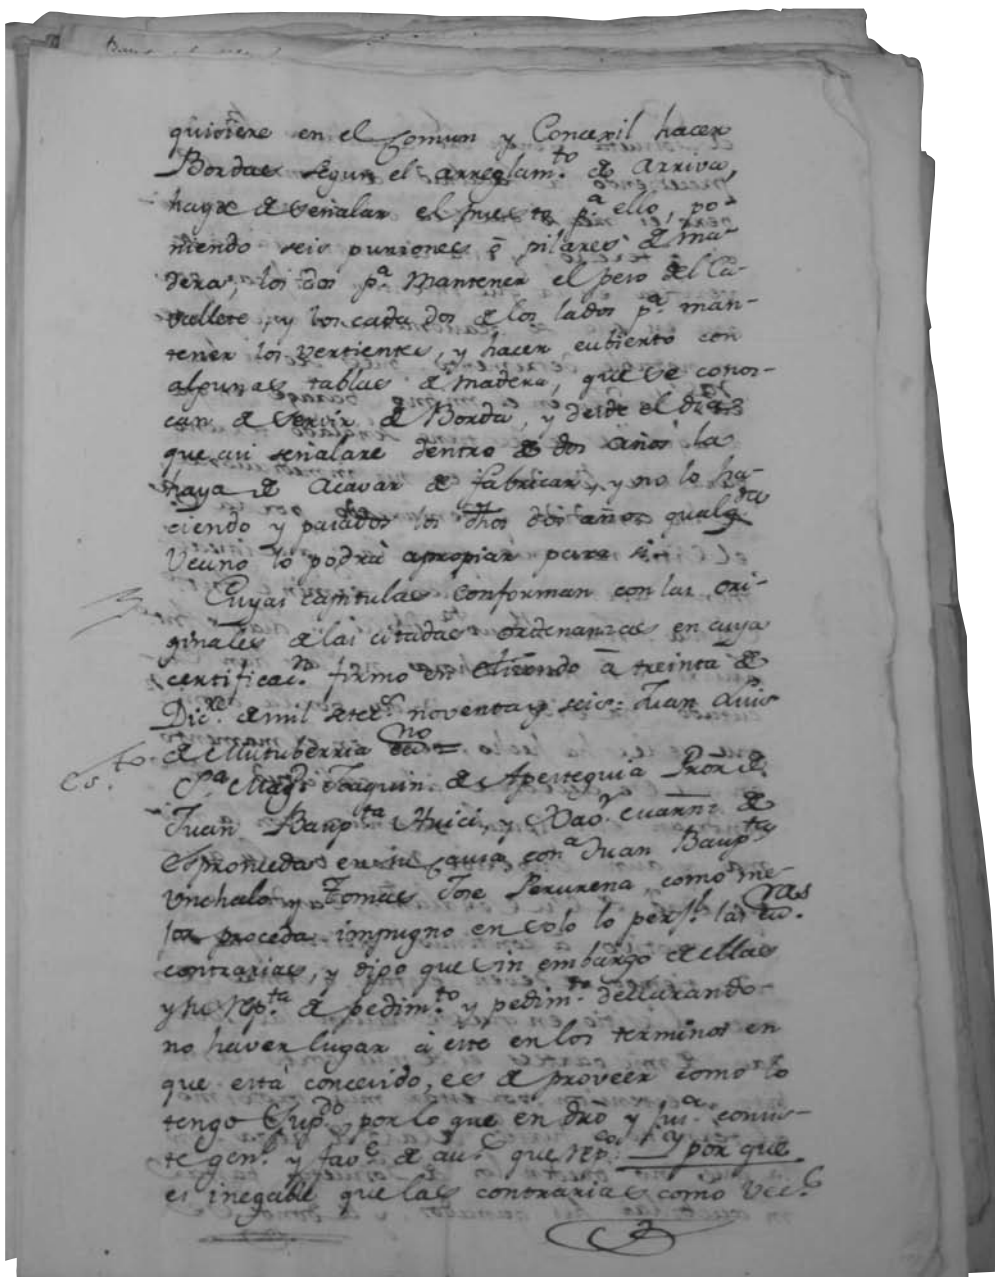 quisiere en el Comun y Concexil hacer
Bordas segun el arreglam.to de arriva,
haya de señalar el puesto p.a ello, po-
niendo seis punzones ô pilares de ma-
dera, los dos p.a mantener el peso del Ca-
vallete, y los cada dos de los lados p.a man-
tener los vertientes, y hacer cubierto con
algunas tablas de madera, que se conoz-
can de servir de Borda, y desde el dia
que asi señalare dentro de dos años la
haya de acavar de fabricar, y no lo ha-
ciendo y pasados los dhos dos años qualq.a
Vecino lo podrá apropiar para si.
Cuyas capitulas conforman con las ori-
ginales de las citadas ordenanzas en cuya
certificac.n firmo en à treinta de
Dic.re de mil setec.s noventa y seis: Juan Luis
de no
to.
es. S.a Mag.d Joaquin de Apesteguia Pror. de
Juan Baup.ta Huici, y de
Espronceda en su causa con.a Juan Baup.ta
y Tomas Jose Perurena, como me-
jor proceda impugno en solo lo perj.l las ras
contrarias, y digo que sin embargo de ellas
y su rep.ta de pedim.to y pedim.to declarando
no haver lugar à este en los terminos en
que está concevido, es de proveer como lo
tengo Sup.do por lo que en dro y jus.a consis-
te gen.l y fav.e de au.s que rep.co y por que
es inegable que las contrarias como vec.s